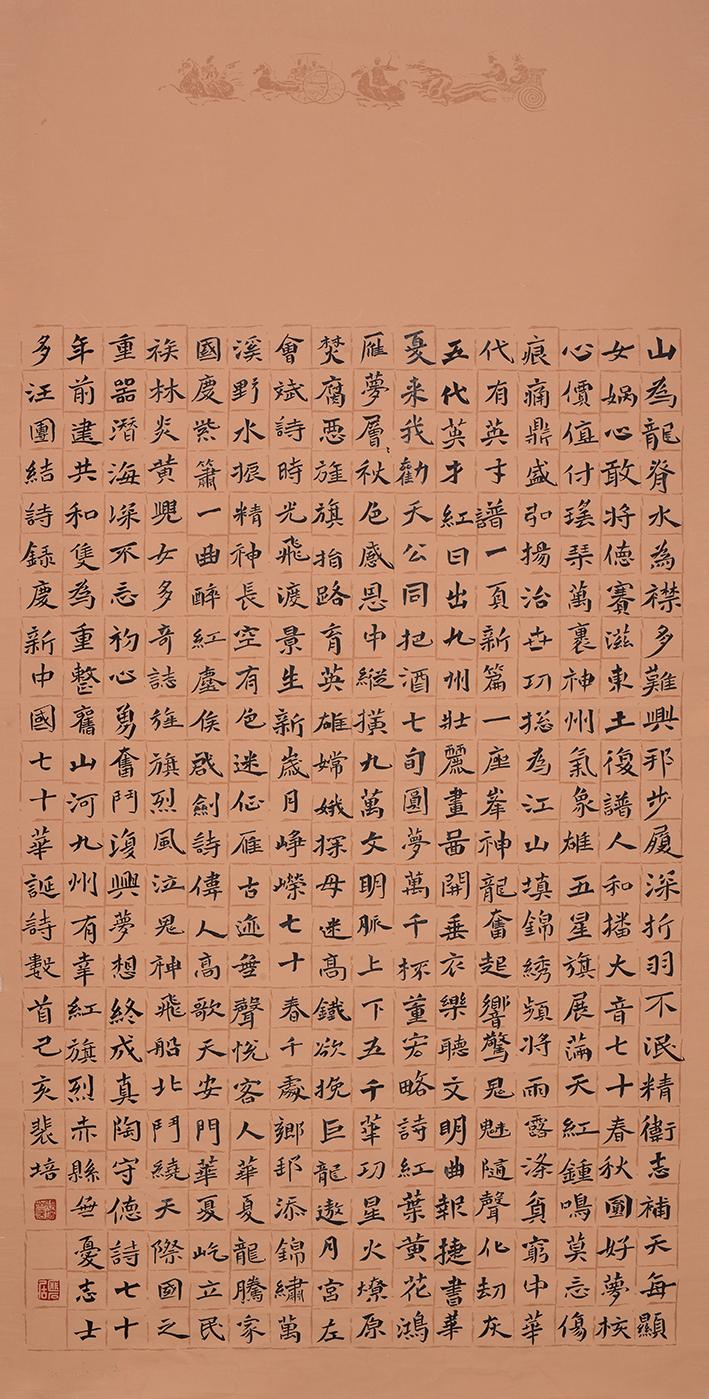 山為龍脊水為襟多難興邦步履深折羽不泯精衛志補天每顯
女媧心敢將德賽滋東土復譜人和播大音七十春秋圓好夢核
心價值付瑤琴萬裏神州氣象雄五星旗展滿天紅鍾鳴莫忘傷
痕痛鼎盛弘揚治世功揽為江山填錦綉頻將雨露滌貧窮中華
代有英才譜一頁新篇一座峯神龍奮起響驚鬼魅隨聲化劫灰
五代英才紅日出九州壯麗畫啚開垂衣樂聽文明曲報捷書華
憂來我勸天公同把酒七旬圓夢萬千杯董宏略詩紅葉黄花鴻
雁夢層〻秋色感恩中縱横九萬文明脈上下五千華功星火燎原
焚腐惡旌旗指路育英雄嫦娥探母迷高鐵欲挽巨龍遨月宫左
會斌詩時光飛渡景生新歲月峥嶸七十春千處鄉邦添錦繡萬
溪野水振精神長空有色迷征雁古迹無聲悦客人華夏龍騰家
國慶紫簫一曲醉紅塵侯戬劍詩偉人高歌天安門華夏屹立民
族林炎黄兒女多奇誌旌旗烈風泣鬼神飛船北鬥繞天際國之
重器潛海深不忘初心勇奮鬥復興夢想終成真陶守德詩七十
年前建共和隻為重整舊山河九州有幸紅旗烈赤縣無憂志士
多汪團結詩録慶新中國七十華誕詩數首己亥裴培